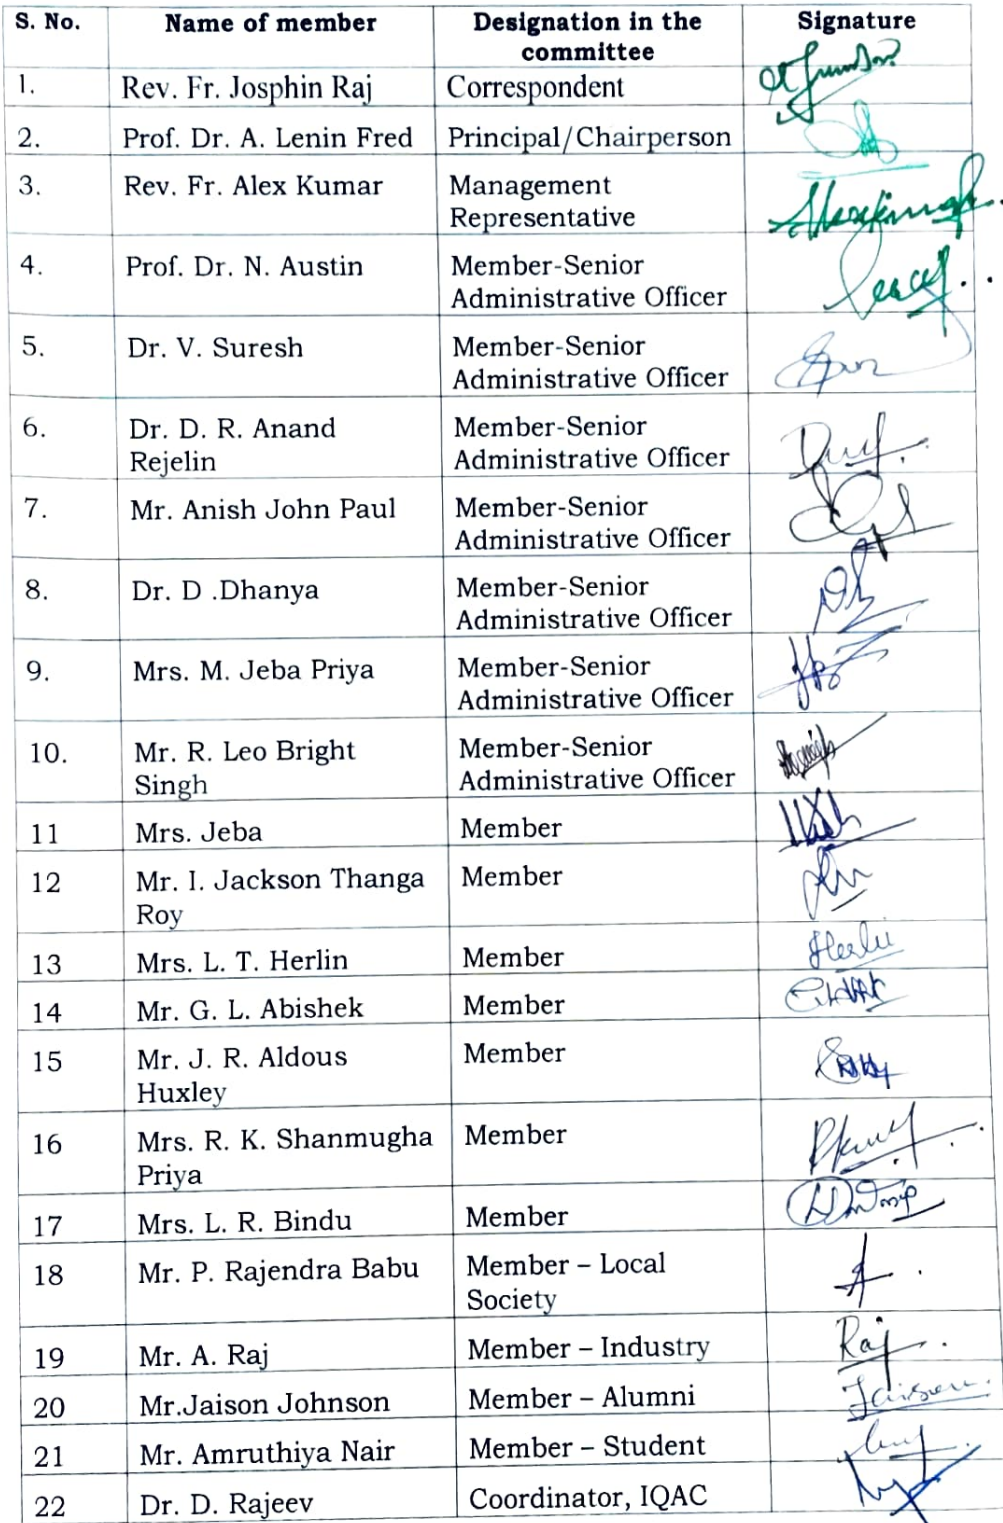 S. No. Name of member Designation in the Signature
committee
1. Rev. Fr. Josphin Raj Correspondent
2. Prof. Dr. A. Lenin Fred Principal/Chairperson
3. Rev. Fr. Alex Kumar Management
Representative
4. Prof. Dr. N. Austin Member-Senior
Administrative Officer
5. Dr. V. Suresh Member-Senior
Administrative Officer
6. Dr. D. R. Anand Member-Senior
Rejelin Administrative Officer
7. Mr. Anish John Paul Member-Senior
Administrative Officer
8. Dr. D .Dhanya Member-Senior
Administrative Officer
9. Mrs. M. Jeba Priya Member-Senior
Administrative Officer
10. Mr. R. Leo Bright Member-Senior
Singh Administrative Officer
11 Mrs. Jeba Member
12 Mr. I. Jackson Thanga Member
Roy
13 Mrs. L. T. Herlin Member Herlin
14 Mr. G. L. Abishek Member
15 Mr. J. R. Aldous Member
Huxley
16 Mrs. R. K. Shanmugha Member
Priya
17 Mrs. L. R. Bindu Member
18 Mr. P. Rajendra Babu Member – Local
Society
19 Mr. A. Raj Member – Industry Raj
20 Mr.Jaison Johnson Member – Alumni Jaison
21 Mr. Amruthiya Nair Member – Student
22 Dr. D. Rajeev Coordinator, IQAC